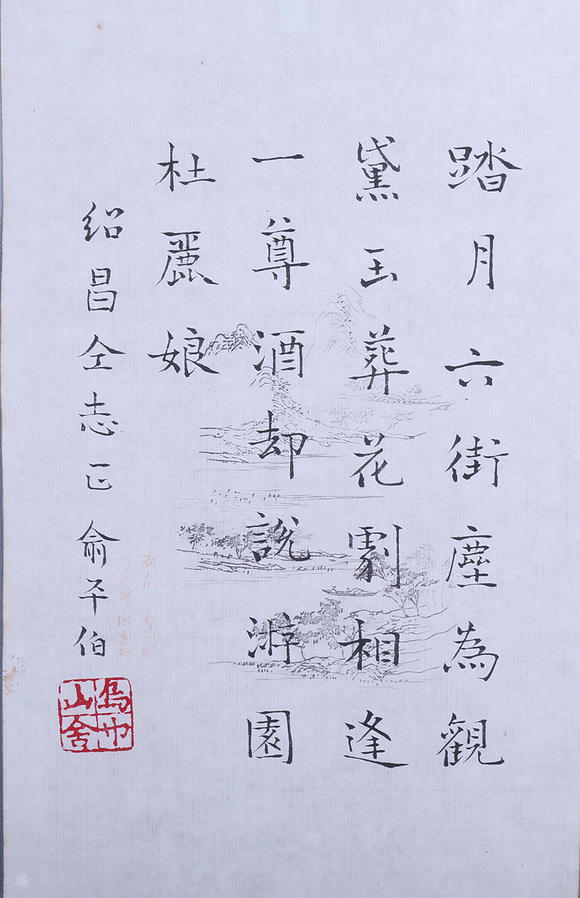 踏月六街塵為觀
黛玉葬花劇相逢
一尊酒却說游園
杜麗娘
紹昌仝志正 俞平伯